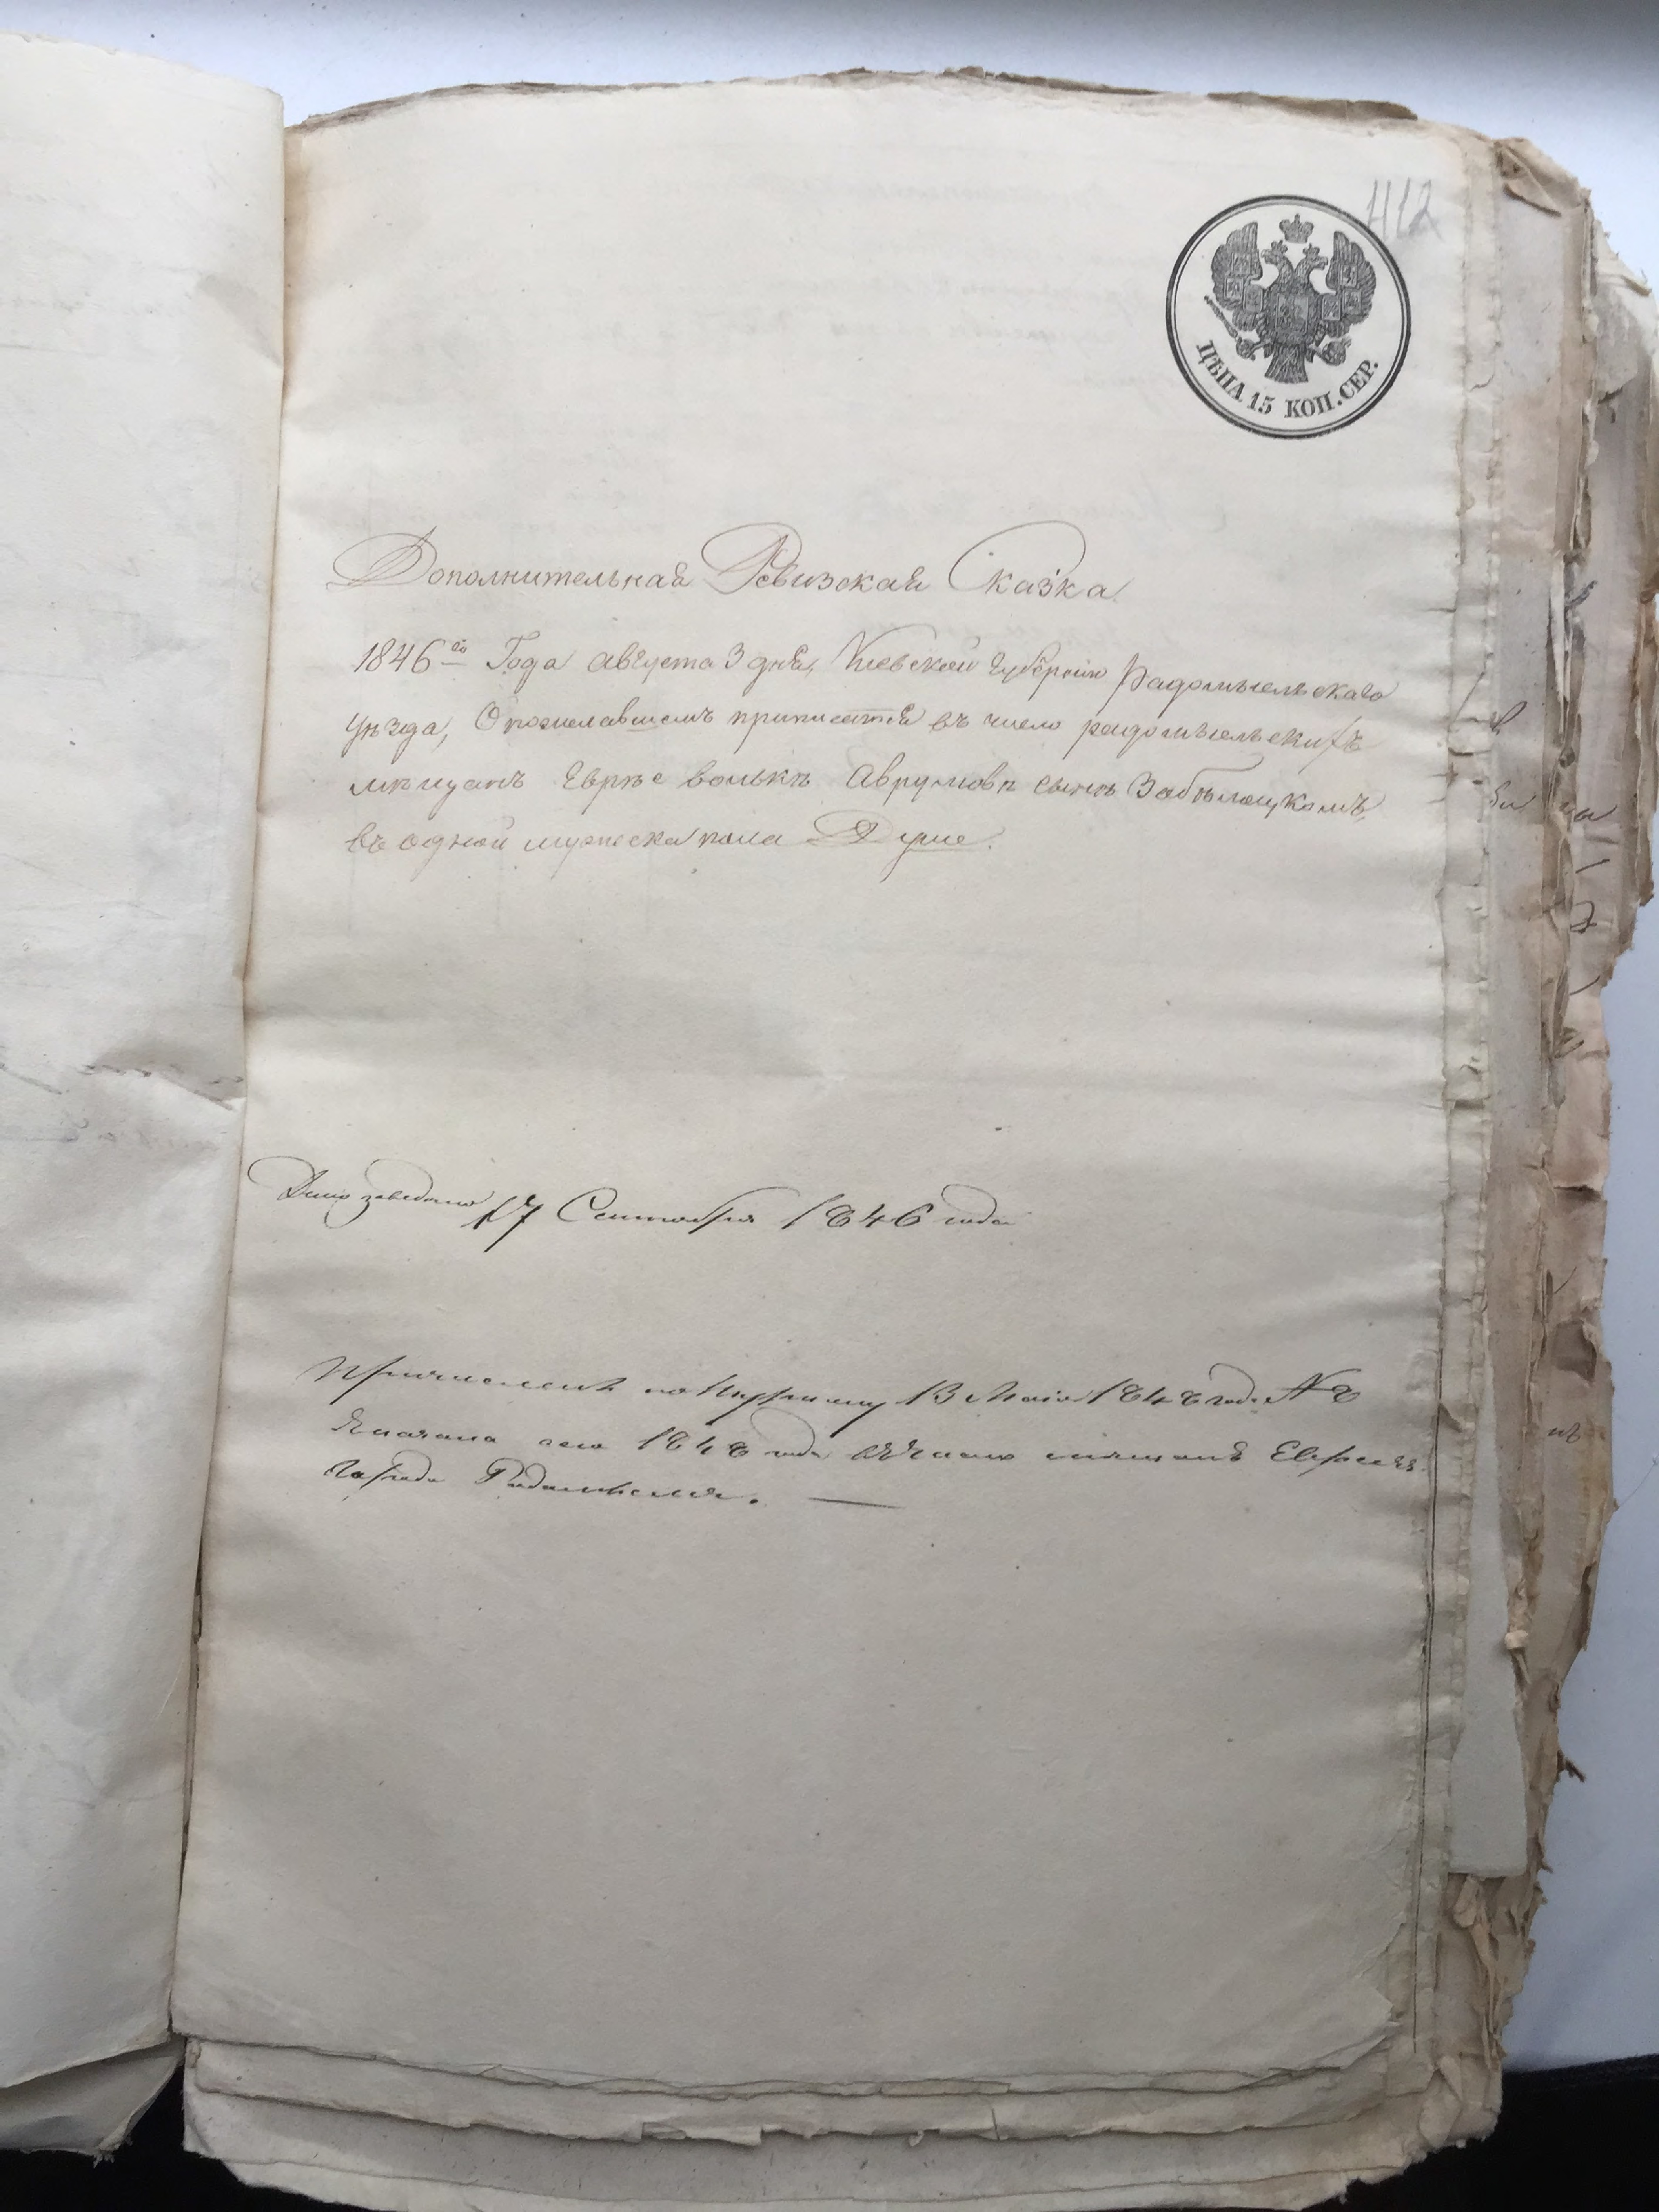 412
ЦѢНА 15 КОП. СЕР.
Дополнительная Ревизская Сказка.
1846го Года августа 3 дня, Киевской губерніи Радомысльскаго
уѣзда, О пожелавшемъ приписатся въ число радомысльскихъ
мѣщанъ Еврѣе волькѣ Аврумовѣ сынѣ Забѣлоцкомъ,
въ одной мужеска пола Душе.
17 Сентября 1846 года
Причисленъ по 13 Маія 1848 года № 8
сего 1848 года въ число мѣщанъ Евреевъ
города Радомысля. —